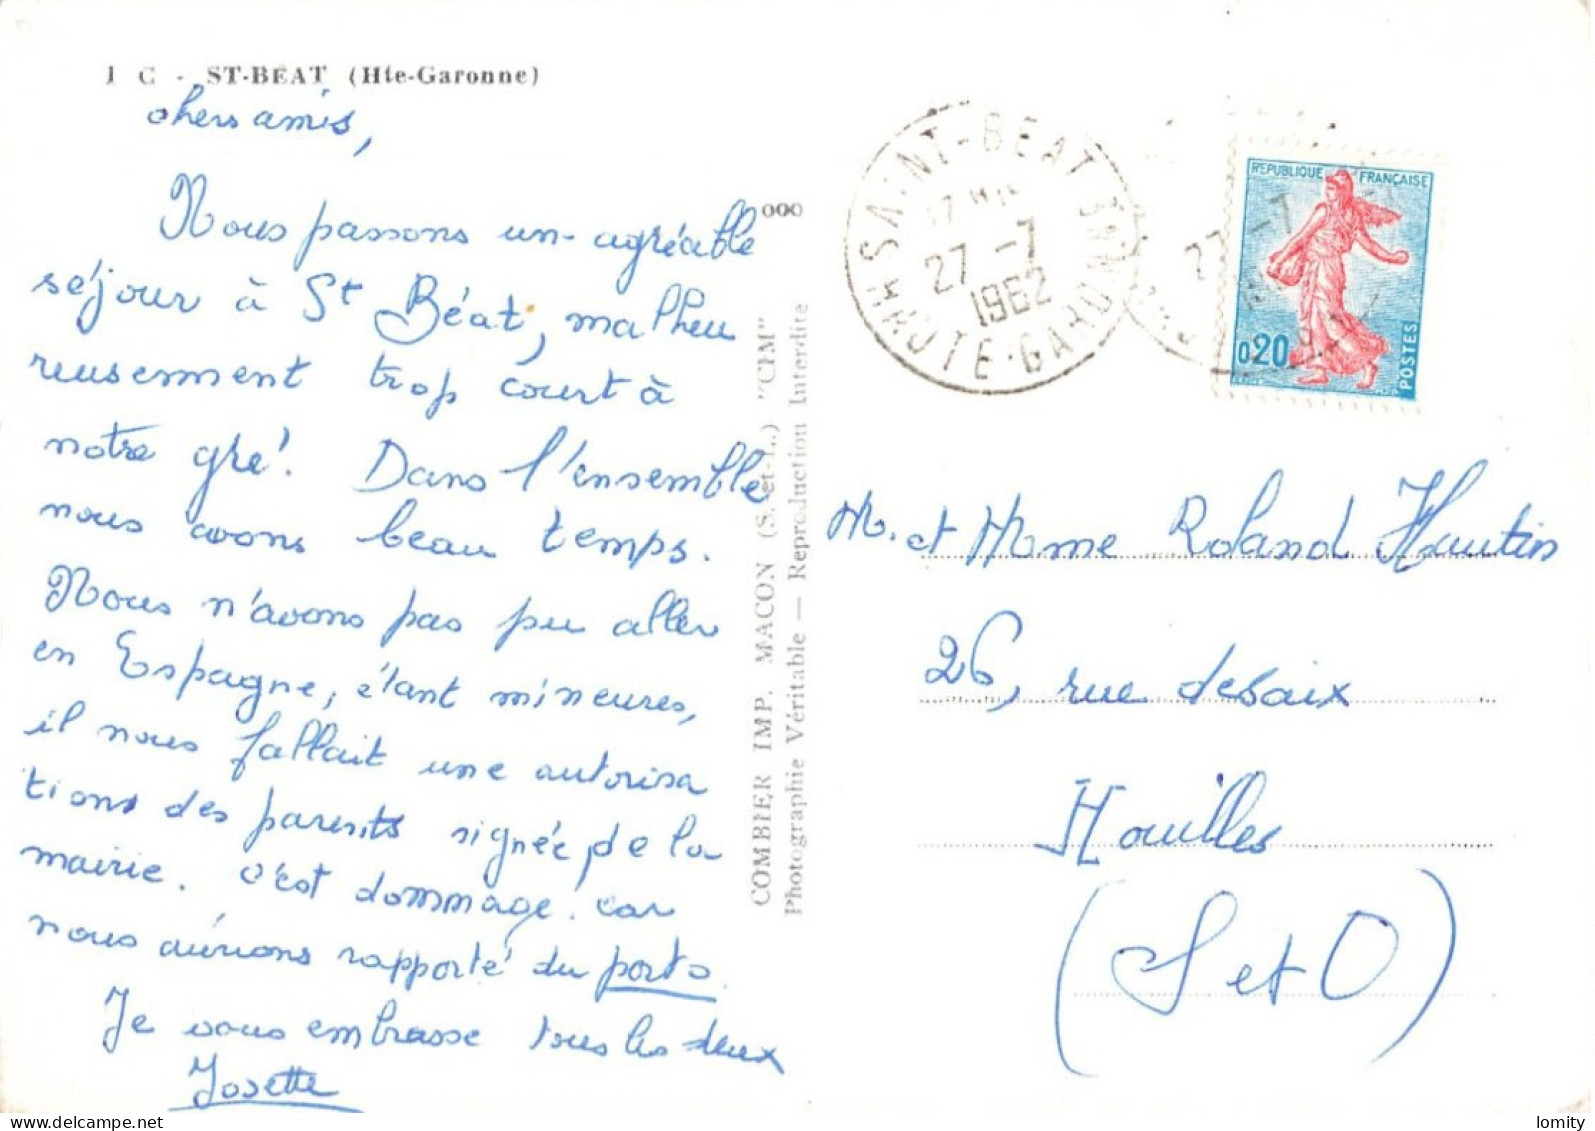 1 C - ST-BÉAT (Hte-Garonne)
chers amis,
Nous passons un agréable
séjour à St Béat, malheu
reusement trop court à
notre gré. Dans l'ensemble
nous avons beau temps.
Nous n'avons pas pu aller
en Espagne, étant mineures,
il nous fallait une autorisa
tions des parents signée de la
mairie. C'est dommage car
nous aurions rapporté du porto.
Je vous embrasse tous les deux
Josette
COMBIER IMP. MACON (S.-et-L.) "CIM"
Photographie Véritable — Reproduction Interdite
SAINT-BÉAT
27 -7
1962
HAUTE-GARONNE
REPUBLIQUE FRANÇAISE
0,20
POSTES
M. et Mme Roland Hautin
26, rue desaix
Houilles
(S et O)
lomity